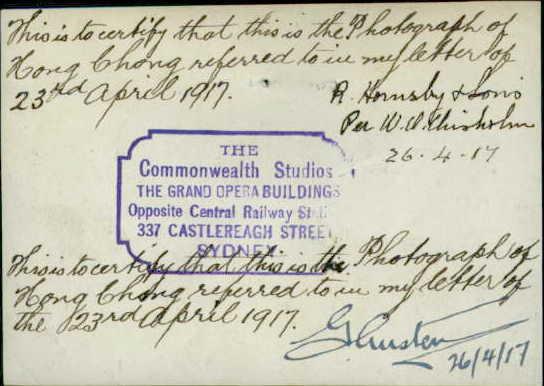 This is to certify that this is the Photograph of
Hong Chong referred to in my letter of
23rd April 1917.
R. Hornsby & Sons
Per W. A. Chisholm
26-4-17
THE
Commonwealth Studios
THE GRAND OPERA BUILDINGS
Opposite Central Railway
337 CASTLEREAGH STREET
SYDNEY.
This is to certify that this is the Photograph of
Hong Chong referred to in my letter of
the 23rd April 1917.
26/4/17